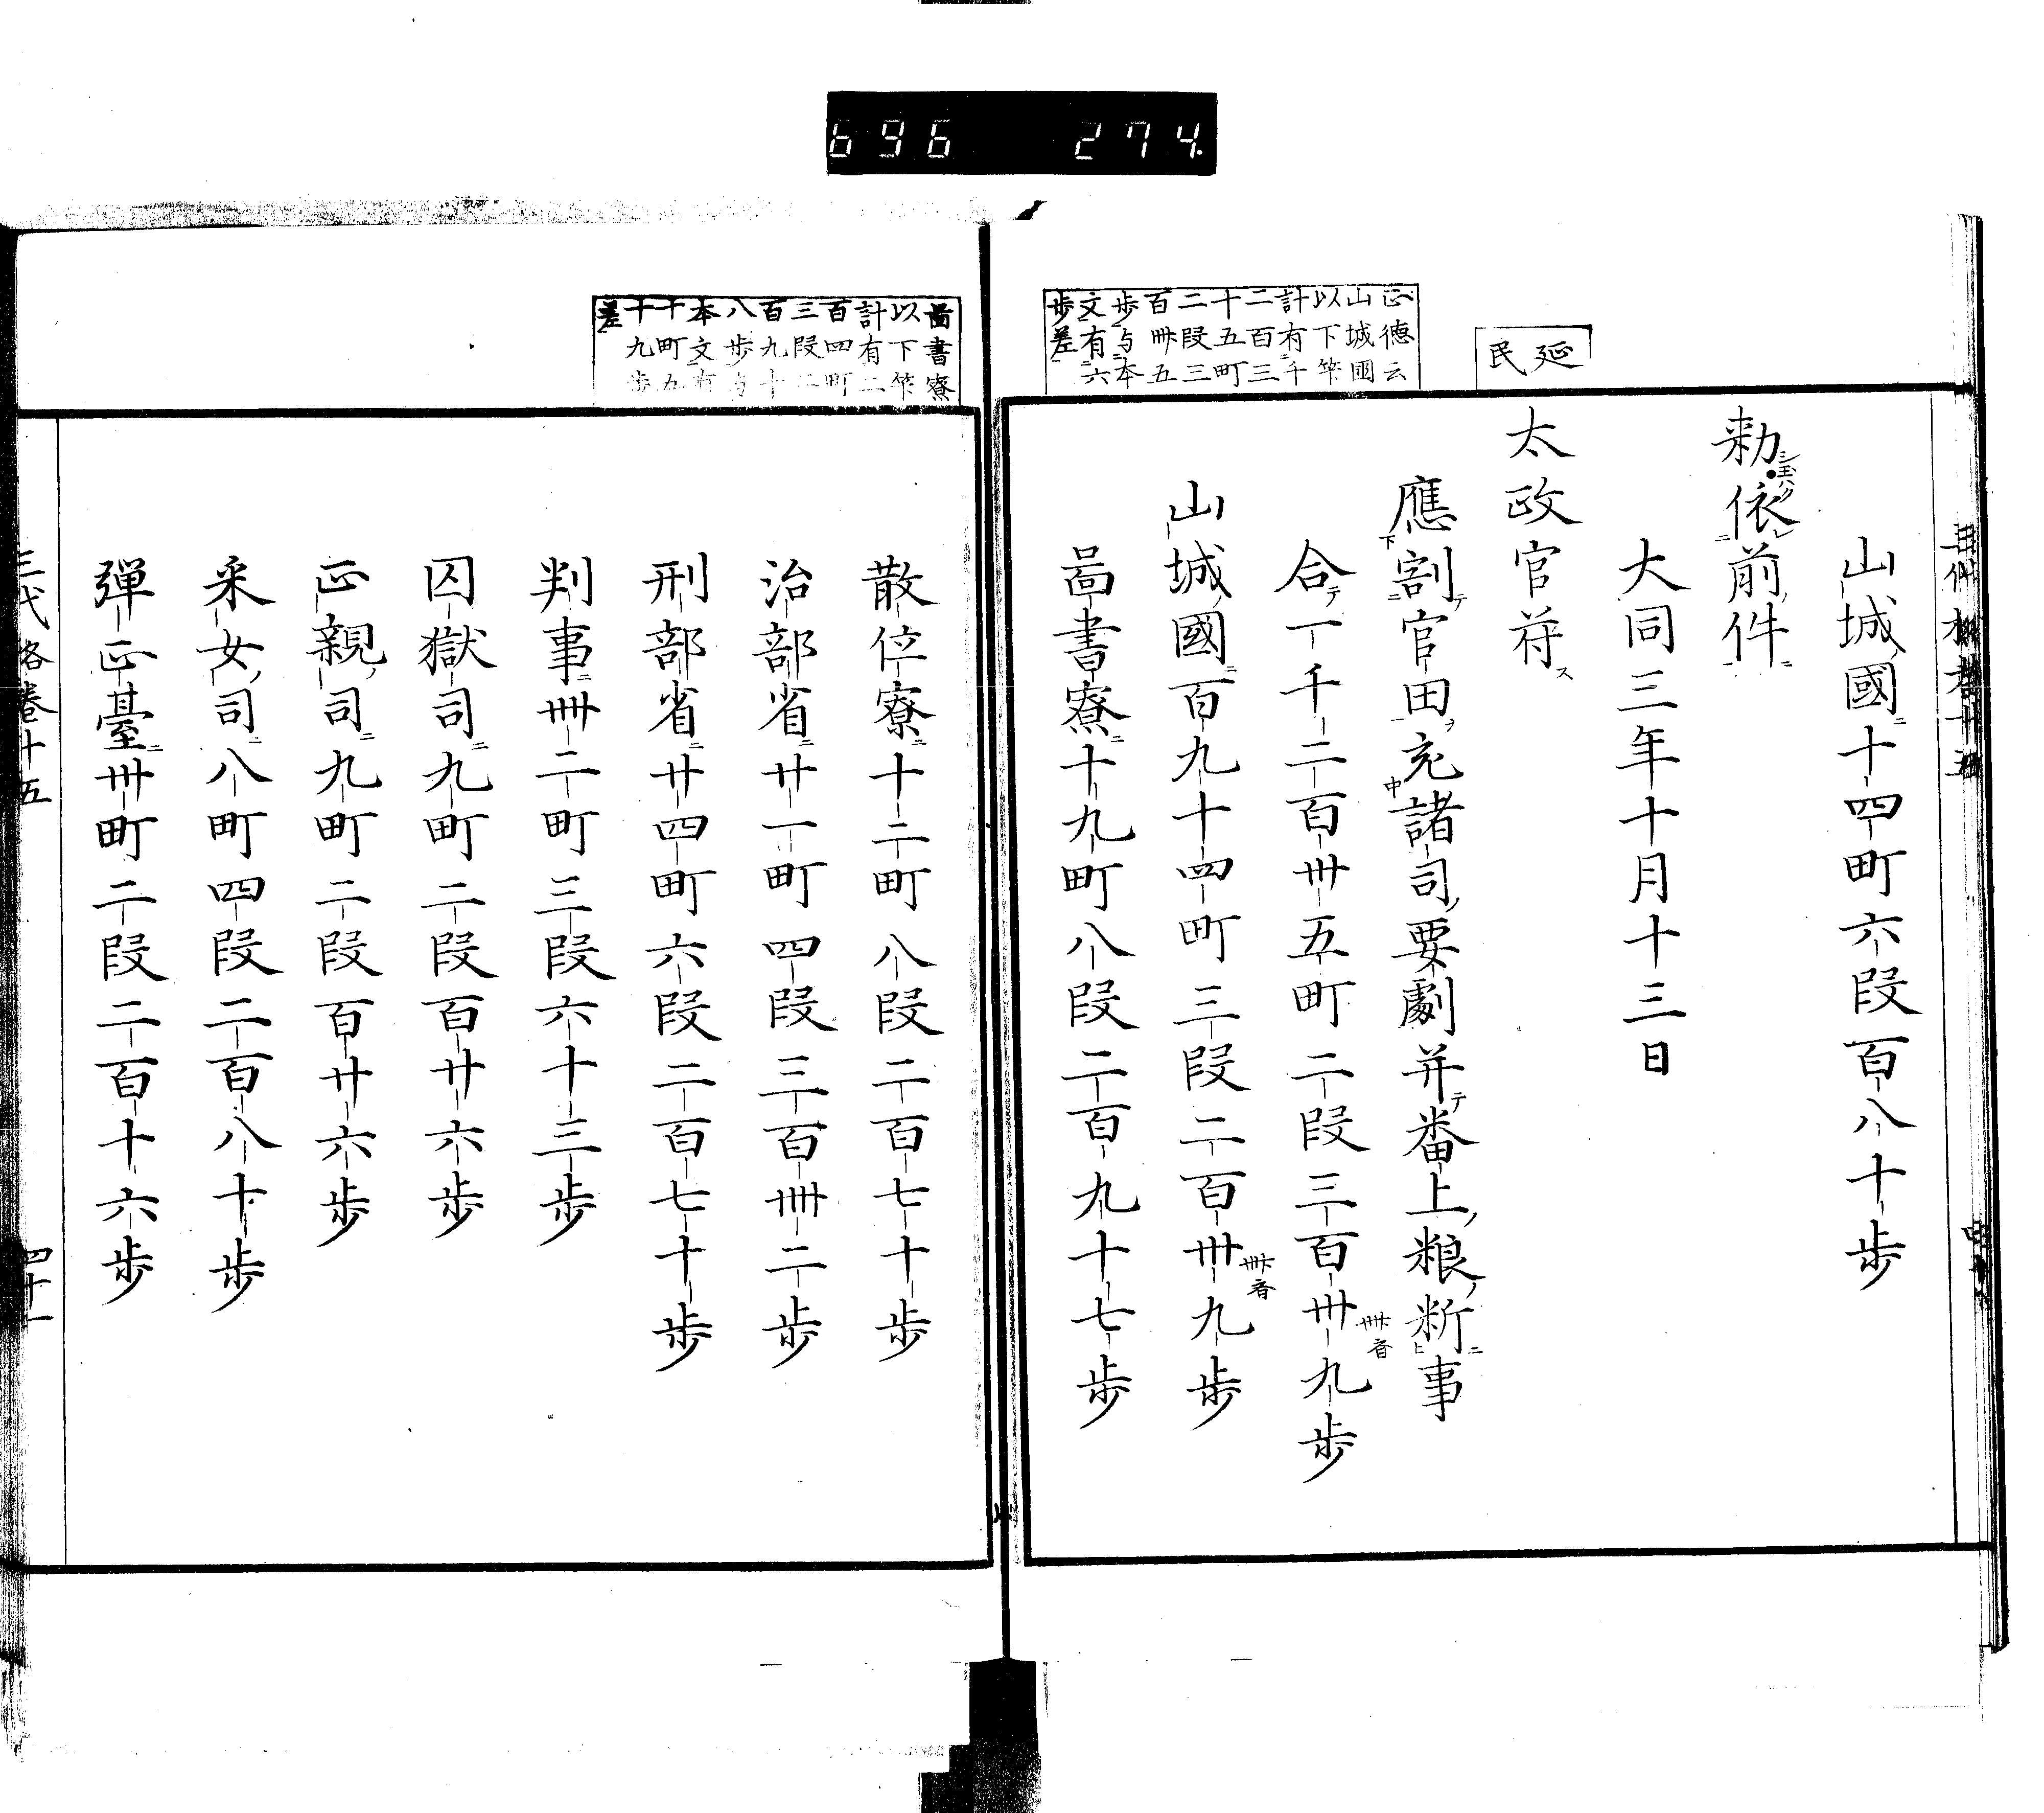 696 274
正德云
山城國
以下筭
計有千
二百三
十五町
二段三
百卌五
步与本
文有六
步差
延
民
山城國十四町六段百八十步
勅依前件
大同三年十月十三日
太政官符ス
應割官田充諸司要劇并番上粮新事
合一千二百卅五町二段三百卅九步
卌卜香
山城國百九十四町三段二百卅九步
卌卜香
啚書寮十九町八段二百九十七步
啚書寮
以下筭
計有二
百四町
三段二
百九十
八步与
本文有
十町九
十九步
差
散位寮十二町八段二百七十步
治部省廿一町四段三百卌二步
刑部省廿四町六段二百七十步
判事卌二町三段六十三步
囚獄司九町二段百廿六步
正親司九町二段百廿六步
采女司八町四段二百八十步
彈正臺卅町二段二百十六步
三代格卷十五
四十一